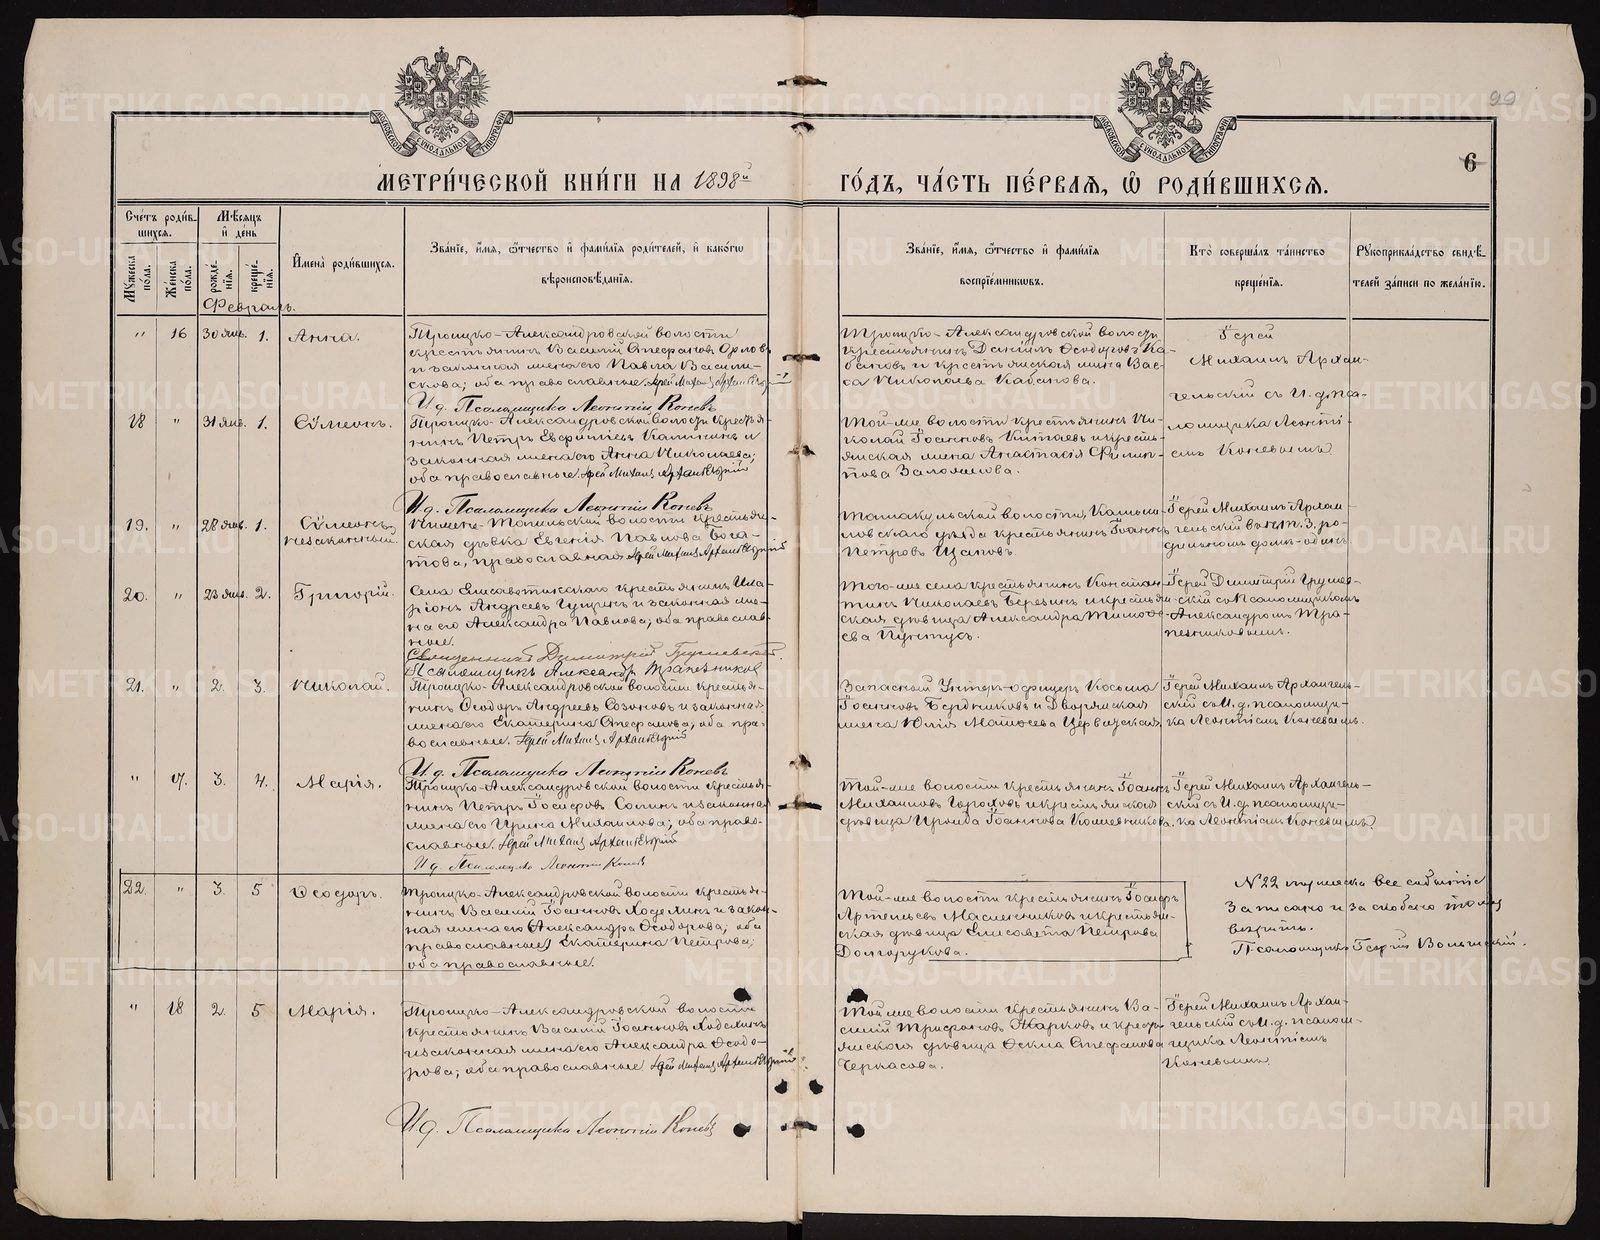 99
6
МОСКОВСКОЙ СУНОДАЛЬНОЙ ТИПОГРАФІИ
МОСКОВСКОЙ СУНОДАЛЬНОЙ ТИПОГРАФІИ
МЕТРИЧЕСКОЙ КНИГИ НА 1898й
ГОДЪ, ЧАСТЬ ПЕРВАЯ, Ѡ РОДИВШИХСЯ.
Счетъ родив-
шихся.
Мужеска пола.
Женска пола.
Мѣсяцъ и день
рожде-нія.
креще-нія.
Имена родившихся.
Званіе, имя, отчество и фамилія родителей, и какогѡ
вѣроисповѣданія.
Званіе, имя, отчество и фамилія
воспріемникѡвъ.
Кто совершалъ таинство
крещенія.
Рукоприкладство свидѣ-
телей записи по желанію.
Февраль.
" 16 30 янв. 1. Анна.
Троицко-Александровской волости
крестьянинъ Василій Стефановъ Орловъ
и законная жена его Павла Василь-
ева; оба православные Іерей Михаилъ Архангельскій
И.д. Псаломщика Леонтій Коневъ
Троицко-Александровской волости
крестьянинъ Даніилъ Ѳеодоровъ Ка-
бановъ и крестьянская жена Вас-
са Николаева Кабанова.
Іерей
Михаилъ Архан-
гельскій съ И. д. пса-
ломщика Леонті-
емъ Коневымъ
18 " 31 янв. 1. Сѵмеонъ.
Троицко-Александровской волости крестья-
нинъ Петръ Евфиміевъ Калининъ и
законная жена его Анна Николаева;
оба православные Іерей Михаилъ Архангельскій
И.д. Псаломщика Леонтій Коневъ
Той-же волости крестьянинъ Ни-
колай Іоанновъ Китаевъ и кресть-
янская жена Анастасія Филип-
пова
19. " 28 янв. 1. Сѵмеонъ,
незаконный.
волости крестьян-
ская дѣвка Евгенія Павлова Бога-
това, православная Іерей Михаилъ Архангельскій
волости, Камыш-
ловскаго уѣзда крестьянинъ Іоаннъ
Петровъ Щаповъ.
Іерей Михаилъ Архан-
гельскій въ
дильномъ домѣ-одинъ
20. " 23 янв. 2. Григорій.
Села Елисаветинскаго крестьянинъ Ила-
ріонъ Андреевъ и законная же-
на его Александра Павлова; оба православ-
ные.
Священникъ Димитрій
Псаломщикъ Александръ Трапезниковъ
Того-же села крестьянинъ Констан-
тинъ Николаевъ Березинъ и крестьян-
ская дѣвица Александра Тимоѳе-
ева
Іерей Димитрій
скій съ Псаломщикомъ
Александромъ Тра-
пезниковымъ.
21. " 2. 3. Николай.
Троицко-Александровской волости крестья-
нинъ Ѳеодоръ Андреевъ Созоновъ и законная
жена его Екатерина Стефанова; оба пра-
вославные. Іерей Михаилъ Архангельскій
И.д. Псаломщика Леонтій Коневъ
Запасный Унтеръ-офицеръ Косьма
Іоанновъ Бердниковъ и Дворянская
жена Юлія Матѳеева
Іерей Михаилъ Архангель-
скій съ И. д. псаломщи-
ка Леонтіемъ Коневымъ.
" 17. 3. 4. Марія.
Троицко-Александровской волости крестья-
нинъ Петръ Іосифовъ и законная
жена его Ирина Михаилова; оба право-
славные. Іерей Михаилъ Архангельскій
И.д. Псаломщика Леонтій Коневъ
Той-же волости крестьянинъ Іоаннъ
Михаиловъ Гороховъ и крестьянская
дѣвица Ираида Іоаннова Кожевникова.
Іерей Михаилъ Архангель-
скій съ И. д. псаломщи-
ка Леонтіемъ Коневымъ
22. " 3. 5 Ѳеодоръ.
Троицко-Александровской волости крестья-
нинъ Василій Іоанновъ Ходелинъ и закон-
ная жена его Александра Ѳеодорова; оба
православные) Екатерина Петрова;
оба православные.
Той-же волости крестьянинъ Іоаннъ
Артемьевъ Масленниковъ и крестьян-
ская дѣвица Елисавета Петрова
Долгорукова.
№22
Записано и за скобело тому
вѣрить.
Псаломщикъ Георгій
" 18 2. 5 Марія.
Троицко-Александровской волости
крестьянинъ Василій Іоанновъ Ходелинъ
и законная жена его Александра Ѳеодо-
рова; оба православные Іерей Михаилъ Архангельскій
И.д. Псаломщика Леонтій Коневъ
Той же волости крестьянинъ Ва-
силій Трифоновъ Жарковъ и кресть-
янская дѣвица Ѳекла Стефанова
Черкасова.
Іерей Михаилъ Архан-
гельскій съ И. д. псалом-
щика Леонтіемъ
Коневымъ.
METRIKI.GASO-URAL.RU